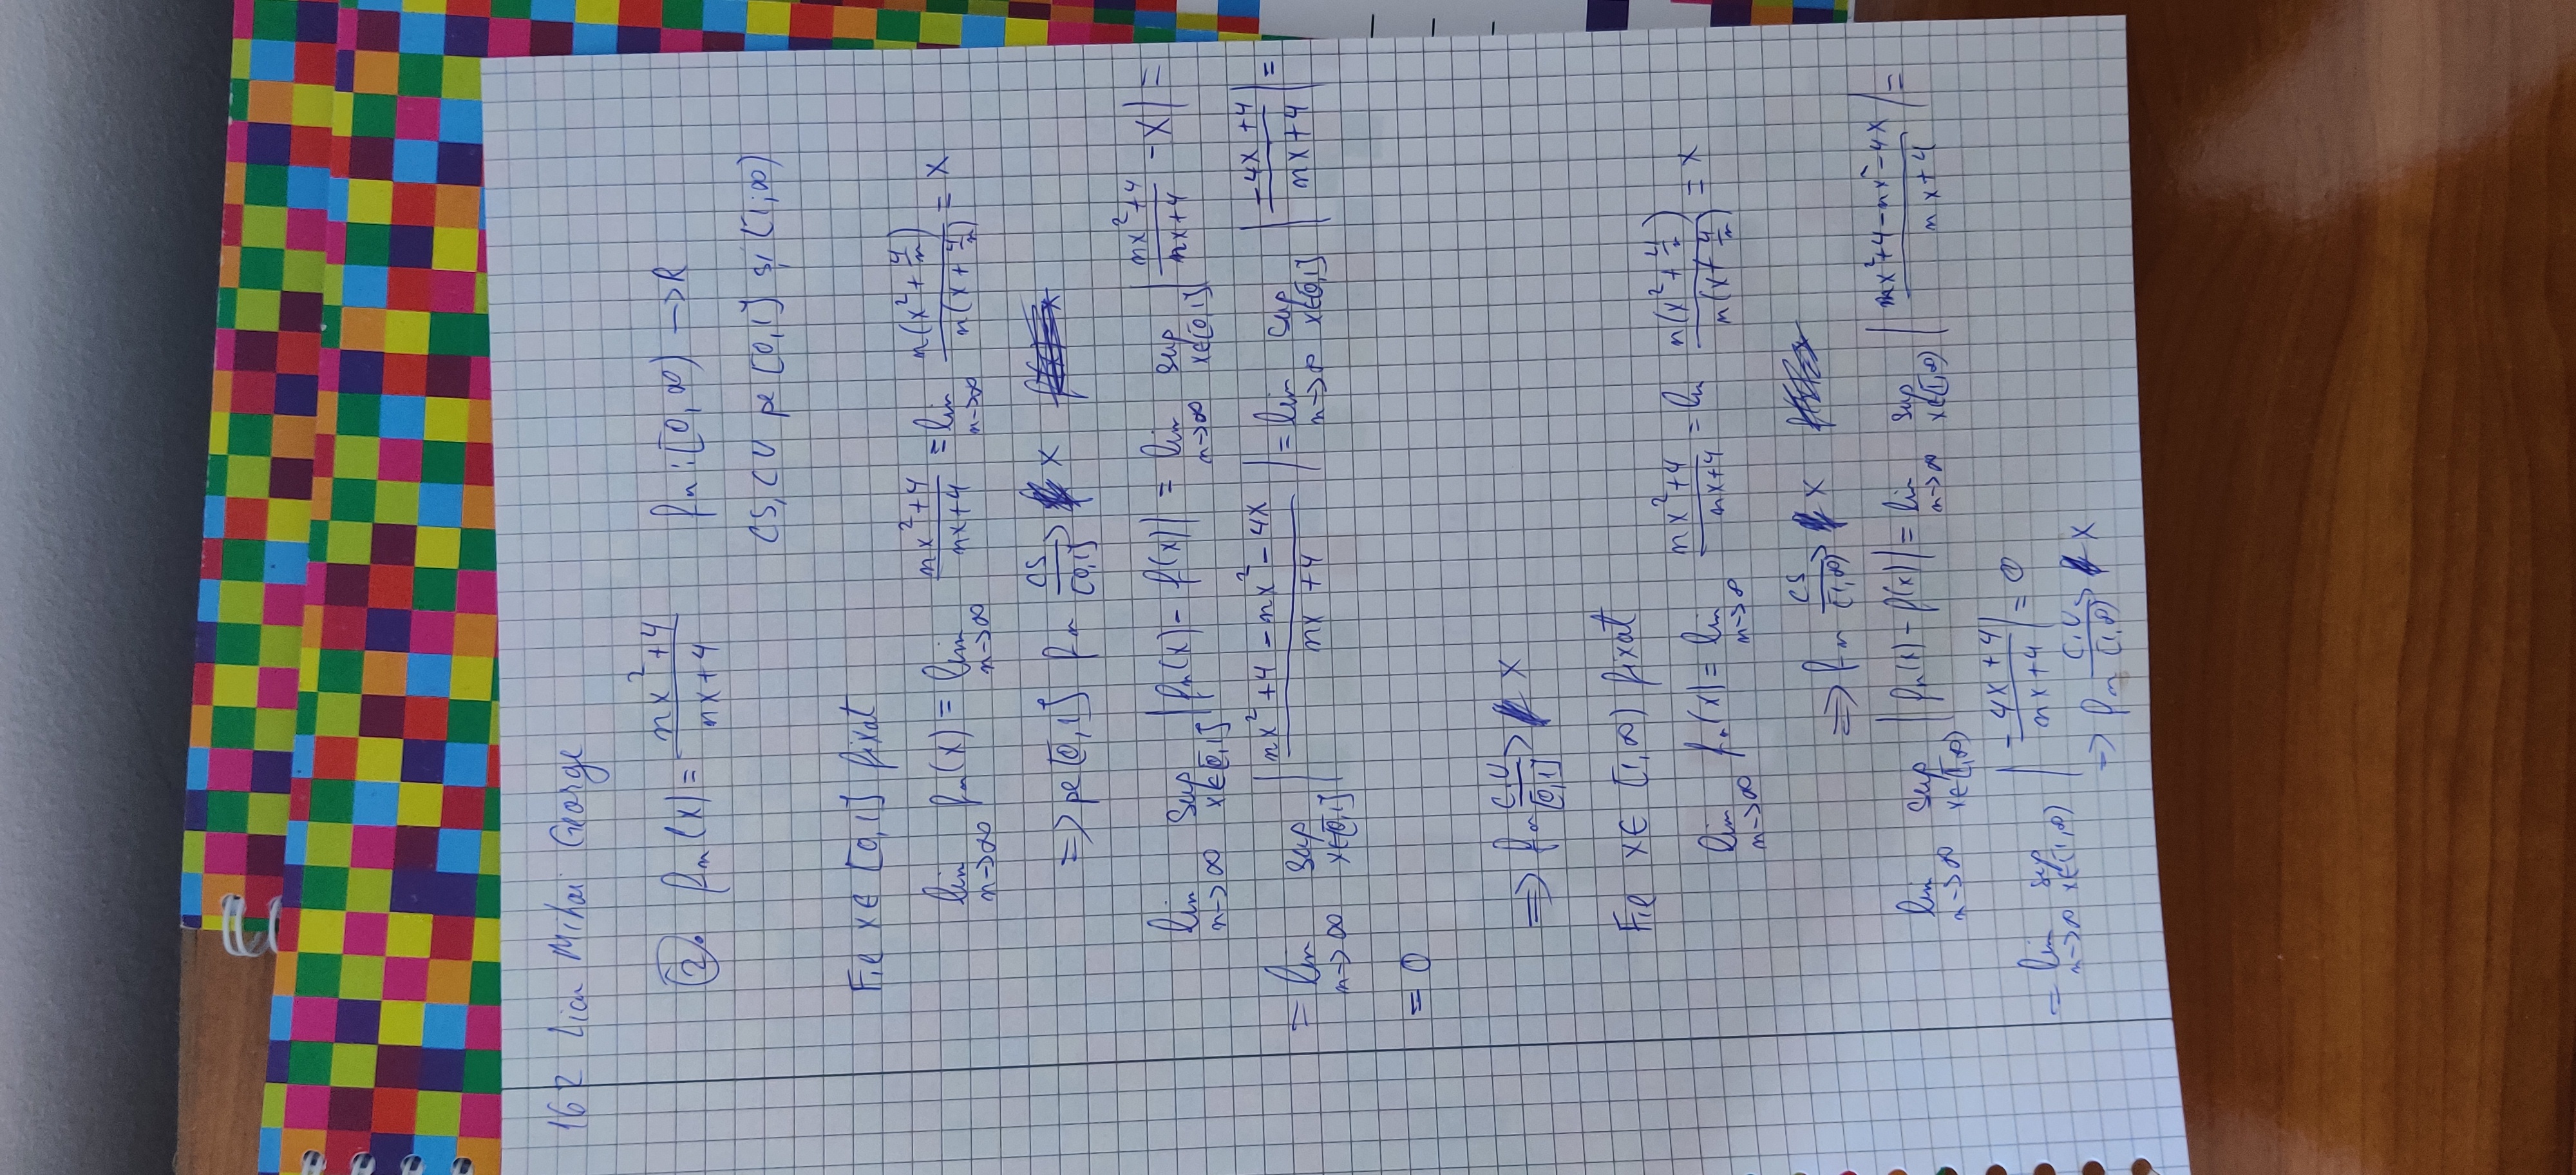 162 Lica Mihai George
2. fn(x) = (nx²+4)/(nx+4)   fn : [0, ∞) → R
CS, CU pe [0,1] și [1,∞)
Fie x ∈ [0,1] fixat
lim n→∞ fn(x) = lim n→∞ (nx²+4)/(nx+4) = lim n→∞ n(x²+4/n)/n(x+4/n) = x
=> pe [0,1] fn CS→[0,1] x
lim n→∞ sup x∈[0,1] |fn(x) - f(x)| = lim n→∞ sup x∈[0,1] |(nx²+4)/(nx+4) - x| =
= lim n→∞ sup x∈[0,1] |(nx²+4-nx²-4x)/(nx+4)| = lim n→∞ sup x∈[0,1] |(-4x+4)/(nx+4)| =
= 0
=> fn C.U→[0,1] x
Fie x ∈ [1,∞) fixat
lim n→∞ fn(x) = lim n→∞ (nx²+4)/(nx+4) = lim n(x²+4/n)/n(x+4/n) = x
=> fn CS→[1,∞) x
lim n→∞ sup x∈[1,∞) |fn(x) - f(x)| = lim n→∞ sup x∈[1,∞) |(nx²+4-nx²-4x)/(nx+4)| =
= lim n→∞ sup x∈[1,∞) |(-4x+4)/(nx+4)| = 0
=> fn C.U→[1,∞) x